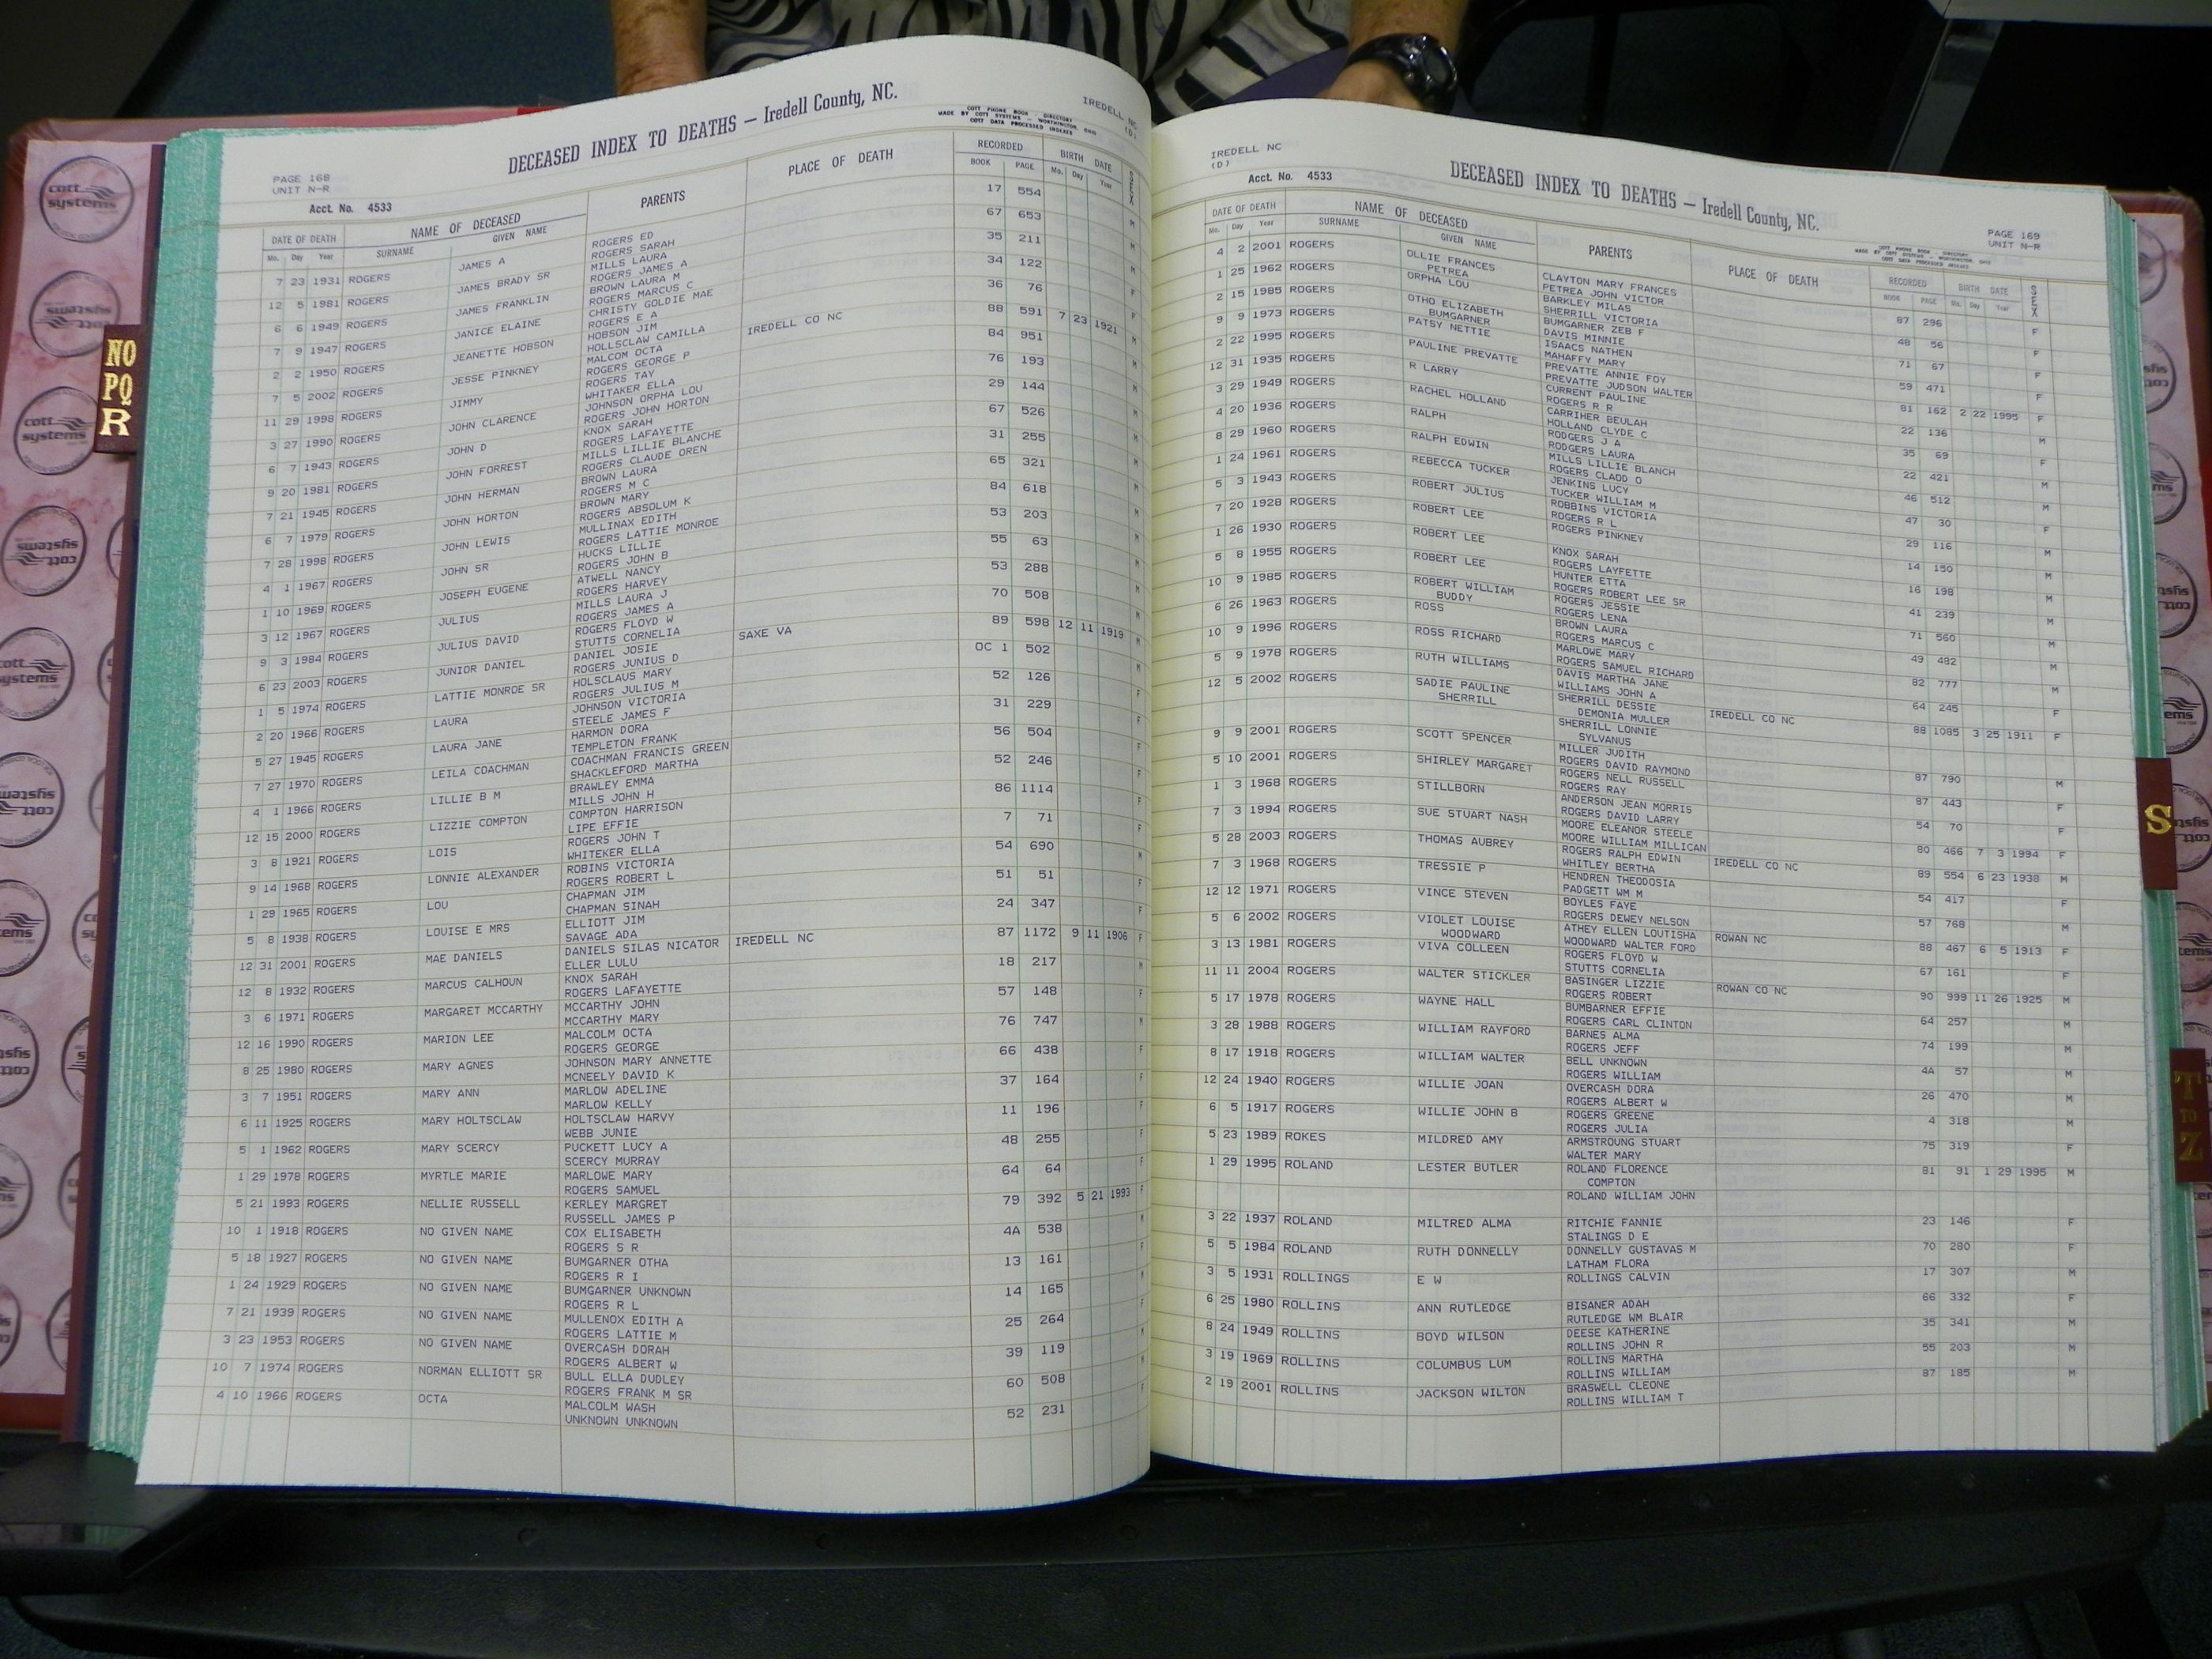 IREDELL NC
(D)
COTT PHONE BOOK - DIRECTORY
MADE BY COTT SYSTEMS - WORTHINGTON OHIO
COTT DATA PROCESSED INDEXES
DECEASED INDEX TO DEATHS — Iredell County, NC.
PAGE 168
UNIT N-R
Acct. No. 4533
DATE OF DEATH NAME OF DECEASED PARENTS PLACE OF DEATH RECORDED BIRTH DATE SEX
Mo. Day Year SURNAME GIVEN NAME BOOK PAGE Mo. Day Year
7 23 1931 ROGERS JAMES A ROGERS ED 17 554 M
ROGERS SARAH
12 5 1981 ROGERS JAMES BRADY SR MILLS LAURA 67 653 M
ROGERS JAMES A
6 6 1949 ROGERS JAMES FRANKLIN BROWN LAURA M 35 211 M
ROGERS MARCUS C
7 9 1947 ROGERS JANICE ELAINE CHRISTY GOLDIE MAE 34 122 F
ROGERS E A
2 2 1950 ROGERS JEANETTE HOBSON HOBSON JIM 36 76 F
HOLLSCLAW CAMILLA
7 5 2002 ROGERS JESSE PINKNEY MALCOM OCTA IREDELL CO NC 88 591 7 23 1921 M
ROGERS GEORGE P
11 29 1998 ROGERS JIMMY ROGERS TAY 84 951 M
WHITAKER ELLA
3 27 1990 ROGERS JOHN CLARENCE JOHNSON ORPHA LOU 76 193 M
ROGERS JOHN HORTON
6 7 1943 ROGERS JOHN D KNOX SARAH 29 144 M
ROGERS LAFAYETTE
9 20 1981 ROGERS JOHN FORREST MILLS LILLIE BLANCHE 67 526 M
ROGERS CLAUDE OREN
7 21 1945 ROGERS JOHN HERMAN BROWN LAURA 31 255 M
ROGERS M C
6 7 1979 ROGERS JOHN HORTON BROWN MARY 65 321 M
ROGERS ABSOLUM K
7 28 1998 ROGERS JOHN LEWIS MULLINAX EDITH 84 618 M
ROGERS LATTIE MONROE
4 1 1967 ROGERS JOHN SR HUCKS LILLIE 53 203 M
ROGERS JOHN B
1 10 1969 ROGERS JOSEPH EUGENE ATWELL NANCY 55 63 M
ROGERS HARVEY
3 12 1967 ROGERS JULIUS MILLS LAURA J 53 288 M
ROGERS JAMES A
9 3 1984 ROGERS JULIUS DAVID ROGERS FLOYD W 70 508 M
STUTTS CORNELIA
6 23 2003 ROGERS JUNIOR DANIEL DANIEL JOSIE SAXE VA 89 598 12 11 1919 M
ROGERS JUNIUS D
1 5 1974 ROGERS LATTIE MONROE SR HOLSCLAUS MARY OC 1 502 M
ROGERS JULIUS M
2 20 1966 ROGERS LAURA JOHNSON VICTORIA 52 126 F
STEELE JAMES F
5 27 1945 ROGERS LAURA JANE HARMON DORA 31 229 F
TEMPLETON FRANK
7 27 1970 ROGERS LEILA COACHMAN COACHMAN FRANCIS GREEN 56 504 F
SHACKLEFORD MARTHA
4 1 1966 ROGERS LILLIE B M BRAWLEY EMMA 52 246 F
MILLS JOHN H
12 15 2000 ROGERS LIZZIE COMPTON COMPTON HARRISON 86 1114 F
LIPE EFFIE
3 8 1921 ROGERS LOIS ROGERS JOHN T 7 71 F
WHITEKER ELLA
9 14 1968 ROGERS LONNIE ALEXANDER ROBINS VICTORIA 54 690 M
ROGERS ROBERT L
1 29 1965 ROGERS LOU CHAPMAN JIM 51 51 F
CHAPMAN SINAH
5 8 1938 ROGERS LOUISE E MRS ELLIOTT JIM 24 347
SAVAGE ADA
12 31 2001 ROGERS MAE DANIELS DANIELS SILAS NICATOR IREDELL NC 87 1172 9 11 1906 F
ELLER LULU
12 8 1932 ROGERS MARCUS CALHOUN KNOX SARAH 18 217 M
ROGERS LAFAYETTE
3 6 1971 ROGERS MARGARET MCCARTHY MCCARTHY JOHN 57 148 F
MCCARTHY MARY
12 16 1990 ROGERS MARION LEE MALCOLM OCTA 76 747 M
ROGERS GEORGE
8 25 1980 ROGERS MARY AGNES JOHNSON MARY ANNETTE 66 438 F
MCNEELY DAVID K
3 7 1951 ROGERS MARY ANN MARLOW ADELINE 37 164 F
MARLOW KELLY
6 11 1925 ROGERS MARY HOLTSCLAW HOLTSCLAW HARVY 11 196 F
WEBB JUNIE
5 1 1962 ROGERS MARY SCERCY PUCKETT LUCY A 48 255 F
SCERCY MURRAY
1 29 1978 ROGERS MYRTLE MARIE MARLOWE MARY 64 64 F
ROGERS SAMUEL
5 21 1993 ROGERS NELLIE RUSSELL KERLEY MARGRET 79 392 5 21 1993 F
RUSSELL JAMES P
10 1 1918 ROGERS NO GIVEN NAME COX ELISABETH 4A 538 M
ROGERS S R
5 18 1927 ROGERS NO GIVEN NAME BUMGARNER OTHA 13 161 F
ROGERS R I
1 24 1929 ROGERS NO GIVEN NAME BUMGARNER UNKNOWN 14 165 M
ROGERS R L
7 21 1939 ROGERS NO GIVEN NAME MULLENOX EDITH A 25 264 F
ROGERS LATTIE M
3 23 1953 ROGERS NO GIVEN NAME OVERCASH DORAH 39 119 M
ROGERS ALBERT W
10 7 1974 ROGERS NORMAN ELLIOTT SR BULL ELLA DUDLEY 60 508 M
ROGERS FRANK M SR
4 10 1966 ROGERS OCTA MALCOLM WASH 52 231 F
UNKNOWN UNKNOWN
IREDELL NC
(D)
Acct. No. 4533
DECEASED INDEX TO DEATHS — Iredell County, NC.
PAGE 169
UNIT N-R
COTT PHONE BOOK - DIRECTORY
MADE BY COTT SYSTEMS - WORTHINGTON OHIO
COTT DATA PROCESSED INDEXES
DATE OF DEATH NAME OF DECEASED PARENTS PLACE OF DEATH RECORDED BIRTH DATE SEX
Mo. Day Year SURNAME GIVEN NAME BOOK PAGE Mo. Day Year
4 2 2001 ROGERS OLLIE FRANCES CLAYTON MARY FRANCES 87 296 F
PETREA PETREA JOHN VICTOR
1 25 1962 ROGERS ORPHA LOU BARKLEY MILAS 48 56 F
SHERRILL VICTORIA
2 15 1985 ROGERS OTHO ELIZABETH BUMGARNER ZEB F 71 67 F
BUMGARNER DAVIS MINNIE
9 9 1973 ROGERS PATSY NETTIE ISAACS NATHEN 59 471 F
MAHAFFY MARY
2 22 1995 ROGERS PAULINE PREVATTE PREVATTE ANNIE FOY 81 162 2 22 1995 F
PREVATTE JUDSON WALTER
12 31 1935 ROGERS R LARRY CURRENT PAULINE 22 136 M
ROGERS R R
3 29 1949 ROGERS RACHEL HOLLAND CARRIHER BEULAH 35 69 F
HOLLAND CLYDE C
4 20 1936 ROGERS RALPH RODGERS J A 22 421 M
RODGERS LAURA
8 29 1960 ROGERS RALPH EDWIN MILLS LILLIE BLANCH 46 512 M
ROGERS CLADD O
1 24 1961 ROGERS REBECCA TUCKER JENKINS LUCY 47 30 F
TUCKER WILLIAM M
5 3 1943 ROGERS ROBERT JULIUS ROBBINS VICTORIA 29 116 M
ROGERS R L
7 20 1928 ROGERS ROBERT LEE ROGERS PINKNEY 14 150 M
1 26 1930 ROGERS ROBERT LEE KNOX SARAH 16 198 M
ROGERS LAYFETTE
5 8 1955 ROGERS ROBERT LEE HUNTER ETTA 41 239 M
ROGERS ROBERT LEE SR
10 9 1985 ROGERS ROBERT WILLIAM ROGERS JESSIE 71 560 M
BUDDY ROGERS LENA
6 26 1963 ROGERS ROSS BROWN LAURA 49 482 M
ROGERS MARCUS C
10 9 1996 ROGERS ROSS RICHARD MARLOWE MARY 82 777 M
ROGERS SAMUEL RICHARD
5 9 1978 ROGERS RUTH WILLIAMS DAVIS MARTHA JANE 64 245 F
WILLIAMS JOHN A
12 5 2002 ROGERS SADIE PAULINE SHERRILL DESSIE IREDELL CO NC 88 1085 3 25 1911 F
SHERRILL DEMONIA MULLER
SHERRILL LONNIE
SYLVANUS
9 9 2001 ROGERS SCOTT SPENCER MILLER JUDITH 87 790 M
ROGERS DAVID RAYMOND
5 10 2001 ROGERS SHIRLEY MARGARET ROGERS NELL RUSSELL 87 443 F
ROGERS RAY
1 3 1968 ROGERS STILLBORN ANDERSON JEAN MORRIS 54 70 F
ROGERS DAVID LARRY
7 3 1994 ROGERS SUE STUART NASH MOORE ELEANOR STEELE 80 466 7 3 1994 F
MOORE WILLIAM MILLICAN
5 28 2003 ROGERS THOMAS AUBREY ROGERS RALPH EDWIN IREDELL CO NC 89 554 6 23 1938 M
WHITLEY BERTHA
7 3 1968 ROGERS TRESSIE P HENDREN THEODOSIA 54 417 F
PADGETT WM M
12 12 1971 ROGERS VINCE STEVEN BOYLES FAYE 57 768 M
ROGERS DEWEY NELSON
5 6 2002 ROGERS VIOLET LOUISE ATHEY ELLEN LOUTISHA ROWAN NC 88 467 6 5 1913 F
WOODWARD WOODWARD WALTER FORD
3 13 1981 ROGERS VIVA COLLEEN ROGERS FLOYD W 67 161 F
STUTTS CORNELIA
11 11 2004 ROGERS WALTER STICKLER BASINGER LIZZIE ROWAN CO NC 90 999 11 26 1925 M
ROGERS ROBERT
5 17 1978 ROGERS WAYNE HALL BUMBARNER EFFIE 64 257 M
ROGERS CARL CLINTON
3 28 1988 ROGERS WILLIAM RAYFORD BARNES ALMA 74 199 M
ROGERS JEFF
8 17 1918 ROGERS WILLIAM WALTER BELL UNKNOWN 4A 57 M
ROGERS WILLIAM
12 24 1940 ROGERS WILLIE JOAN OVERCASH DORA 26 470 M
ROGERS ALBERT W
6 5 1917 ROGERS WILLIE JOHN B ROGERS GREENE 4 318 M
ROGERS JULIA
5 23 1989 ROKES MILDRED AMY ARMSTROUNG STUART 75 319 F
WALTER MARY
1 29 1995 ROLAND LESTER BUTLER ROLAND FLORENCE 81 91 1 29 1995 M
COMPTON
ROLAND WILLIAM JOHN
3 22 1937 ROLAND MILTRED ALMA RITCHIE FANNIE 23 146 F
STALINGS D E
5 5 1984 ROLAND RUTH DONNELLY DONNELLY GUSTAVAS M 70 280 F
LATHAM FLORA
3 5 1931 ROLLINGS E W ROLLINGS CALVIN 17 307 M
6 25 1980 ROLLINS ANN RUTLEDGE BISANER ADAH 66 332 F
RUTLEDGE WM BLAIR
8 24 1949 ROLLINS BOYD WILSON DEESE KATHERINE 35 341 M
ROLLINS JOHN R
3 19 1969 ROLLINS COLUMBUS LUM ROLLINS MARTHA 55 203 M
ROLLINS WILLIAM
2 19 2001 ROLLINS JACKSON WILTON BRASWELL CLEONE 87 185 M
ROLLINS WILLIAM T
NO
PQ
R
S
T
TO
Z
cott
systems